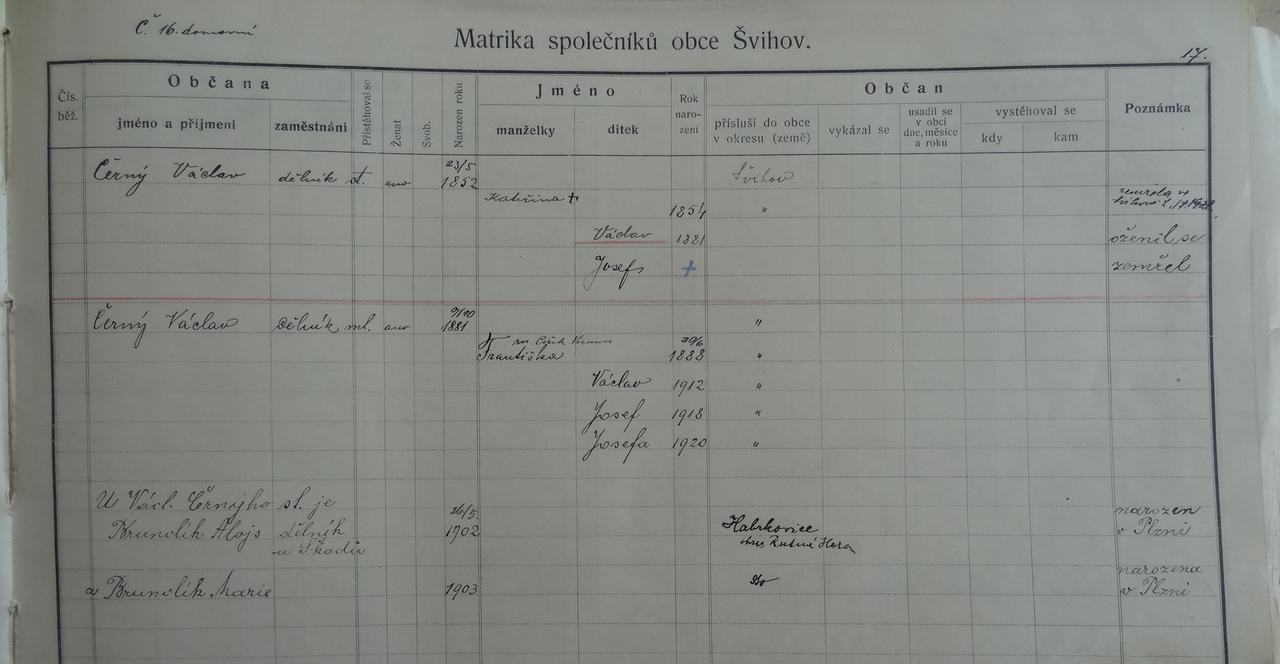 Č 16. domovní
Matrika společníků obce Švihov.
17.
Čís. běž.
Občana
jméno a příjmení
zaměstnání
Přistěhoval se
Ženat
Svob.
Narozen roku
Jméno
manželky
dítek
Rok naro-zení
Občan
přísluší do obce v okresu (země)
vykázal se
usadil se v obci dne, měsíce a roku
vystěhoval se
kdy
kam
Poznámka
Černý Václav dělník st. ano 23/5 1852 Švihov
Kateřina + 1854 " zemřela ve Švihově
Václav 1881 oženil se
Josef + zemřel
Černý Václav dělník ml. ano 9/10 1881 "
Františka 29/6 1888 "
Václav 1912 "
Josef 1918 "
Josefa 1920 "
U Václ. Černýho st. je
Brunclík Alojs dělník 26/5 1902 Habrkovice narozen v Plzni
u Škodů okres Kutná Hora
a Brunclík Marie 1903 dto narozena v Plzni